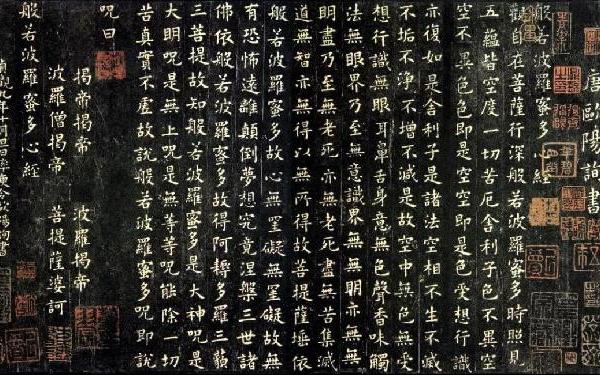 唐歐陽詢書
般若波羅蜜多心經
觀自在菩薩行深般若波羅蜜多時照見
五蘊皆空度一切苦厄舍利子色不異空
空不異色色即是空空即是色受想行識
亦復如是舍利子是諸法空相不生不滅
不垢不淨不增不減是故空中無色無受
想行識無眼耳鼻舌身意無色聲香味觸
法無眼界乃至無意識界無無明亦無無
明盡乃至無老死亦無老死盡無苦集滅
道無智亦無得以無所得故菩提薩埵依
般若波羅蜜多故心無罣礙無罣礙故無
有恐怖遠離顛倒夢想究竟涅槃三世諸
佛依般若波羅蜜多故得阿耨多羅三藐
三菩提故知般若波羅蜜多是大神呪是
大明呪是無上呪是無等等呪能除一切
苦真實不虛故說般若波羅蜜多呪即說
呪曰
揭帝揭帝 波羅揭帝
波羅僧揭帝 菩提薩婆訶
般若波羅蜜多心經
九年十月旦日 歐陽詢書